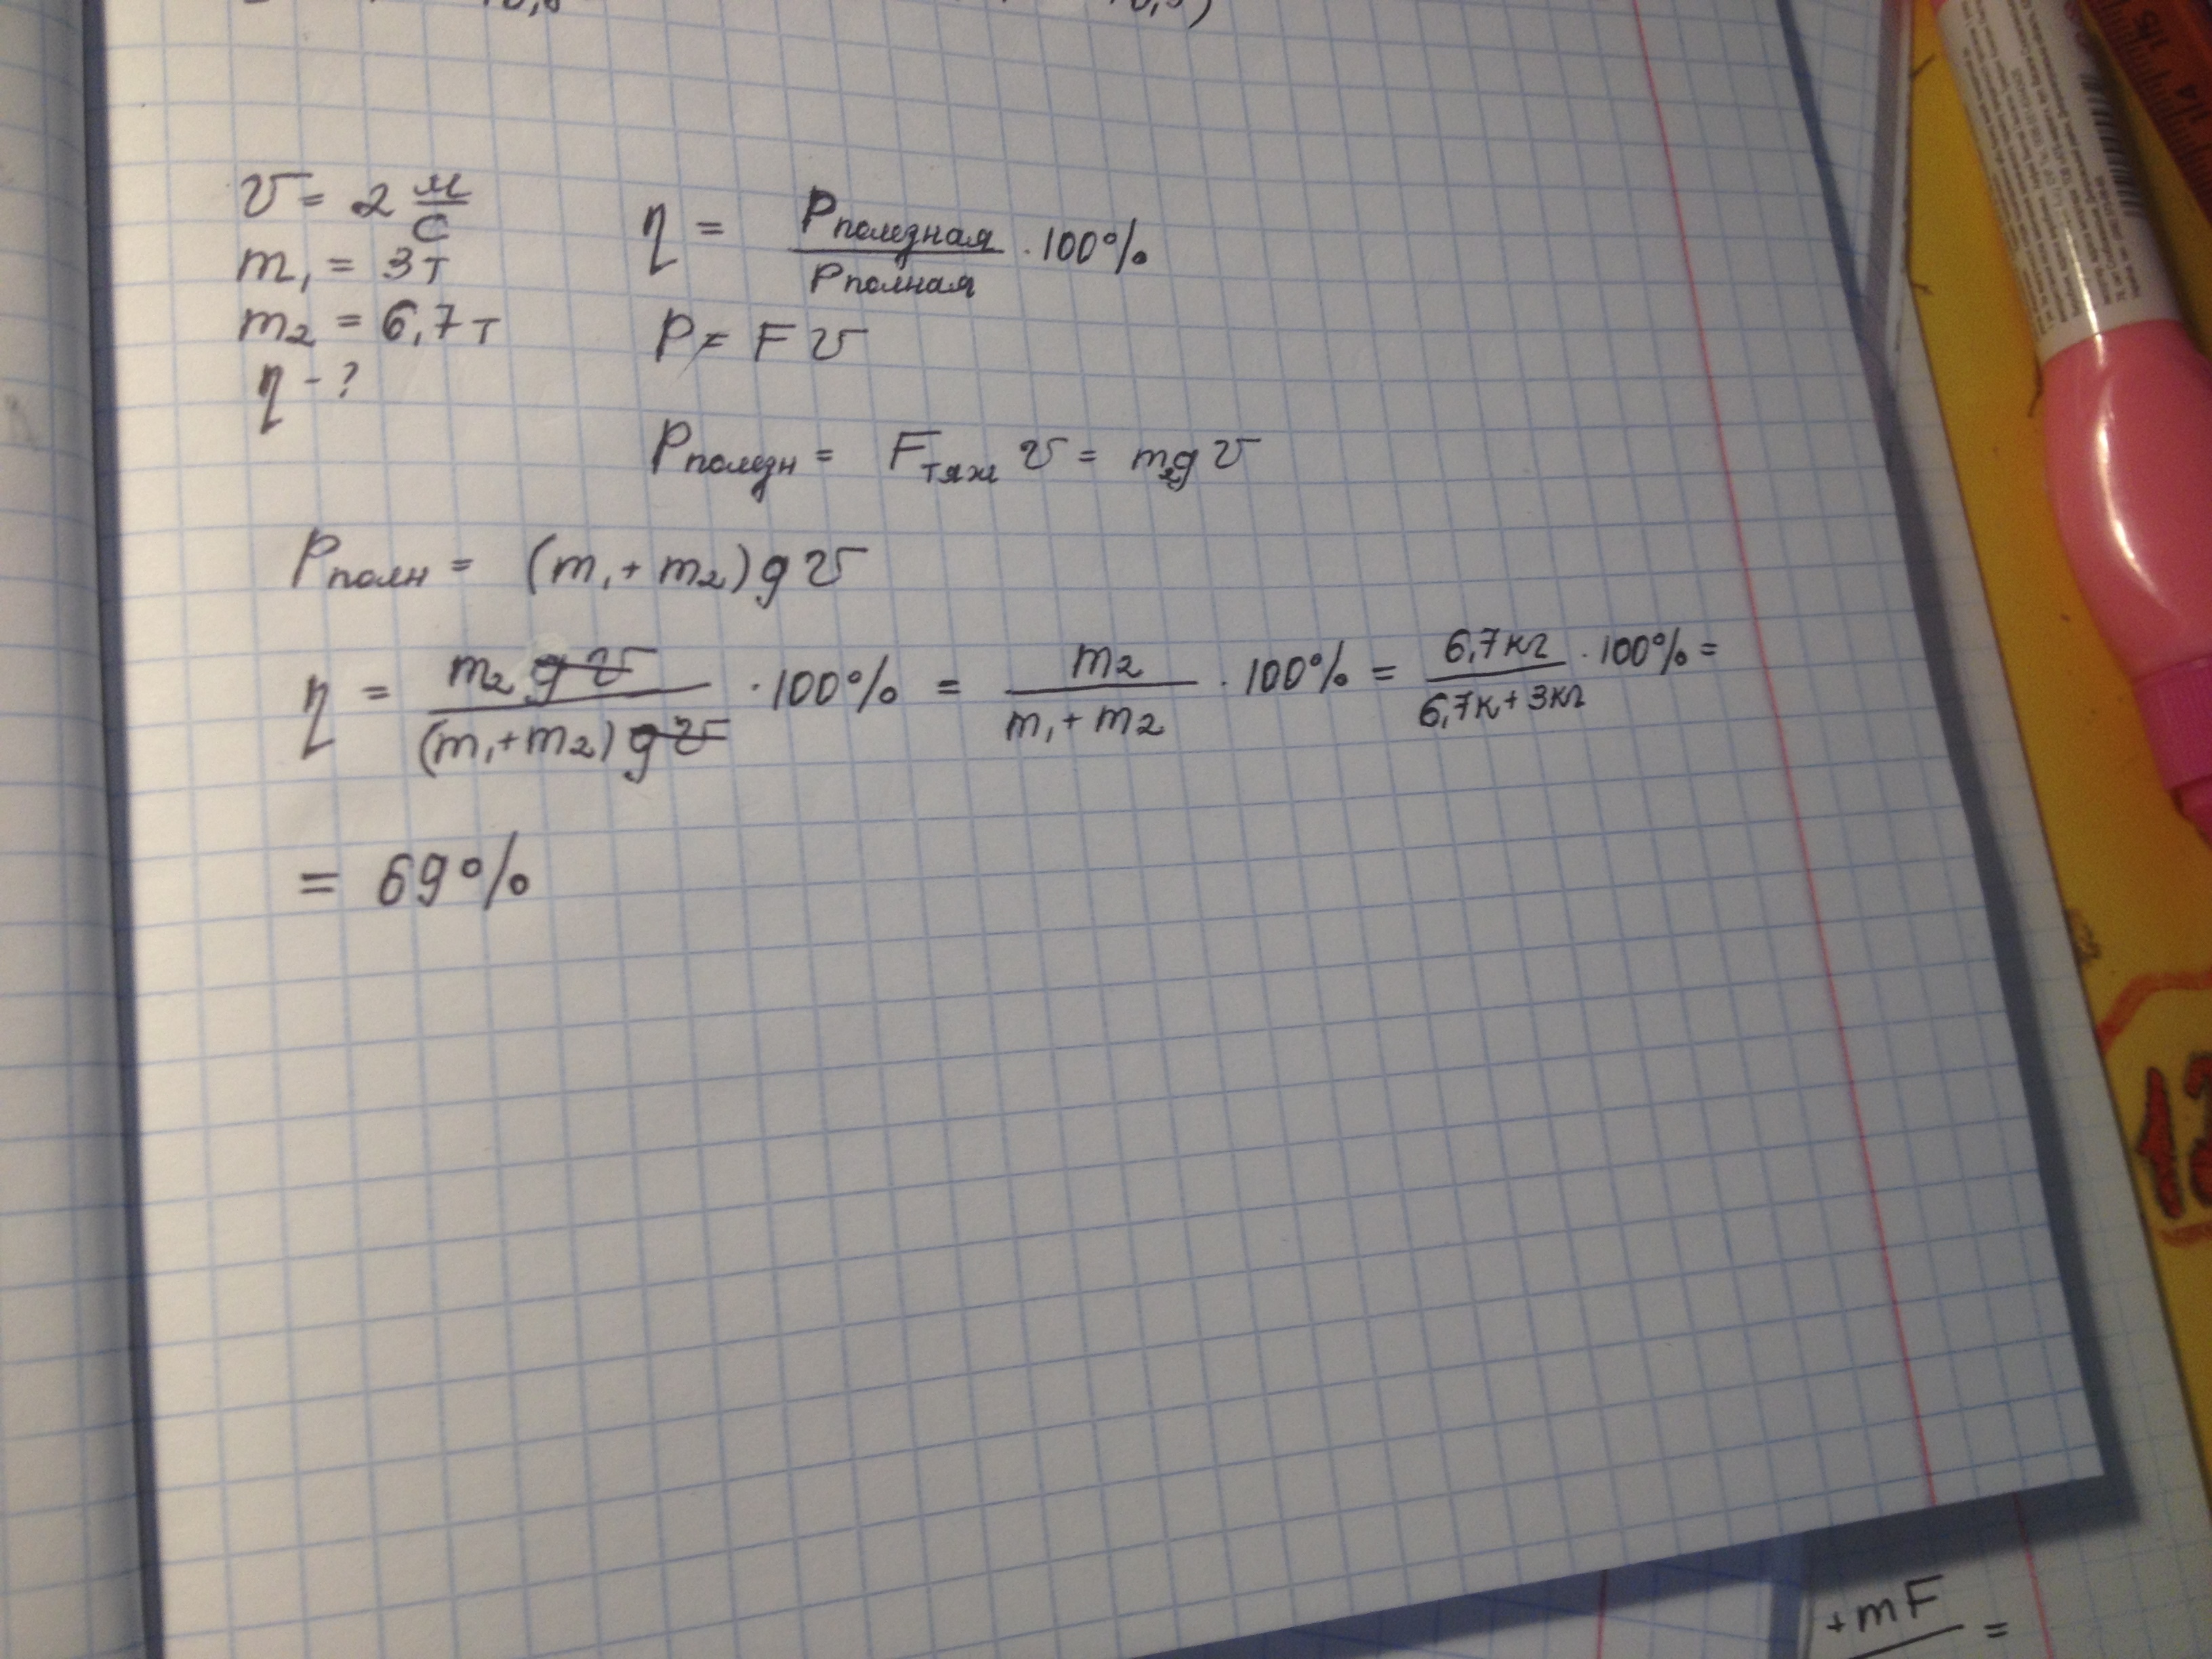 υ = 2 м/с
m₁ = 3т
m₂ = 6,7т
η - ?
η = Pполезная / Pполная · 100%
P = Fυ
Pполезн = Fтяж υ = m₂gυ
Pполн = (m₁ + m₂)gυ
η = m₂gυ / (m₁+m₂)gυ · 100% = m₂ / m₁+m₂ · 100% = 6,7кг / 6,7к+3кг · 100% =
= 69%
+mF
=
15
14
12